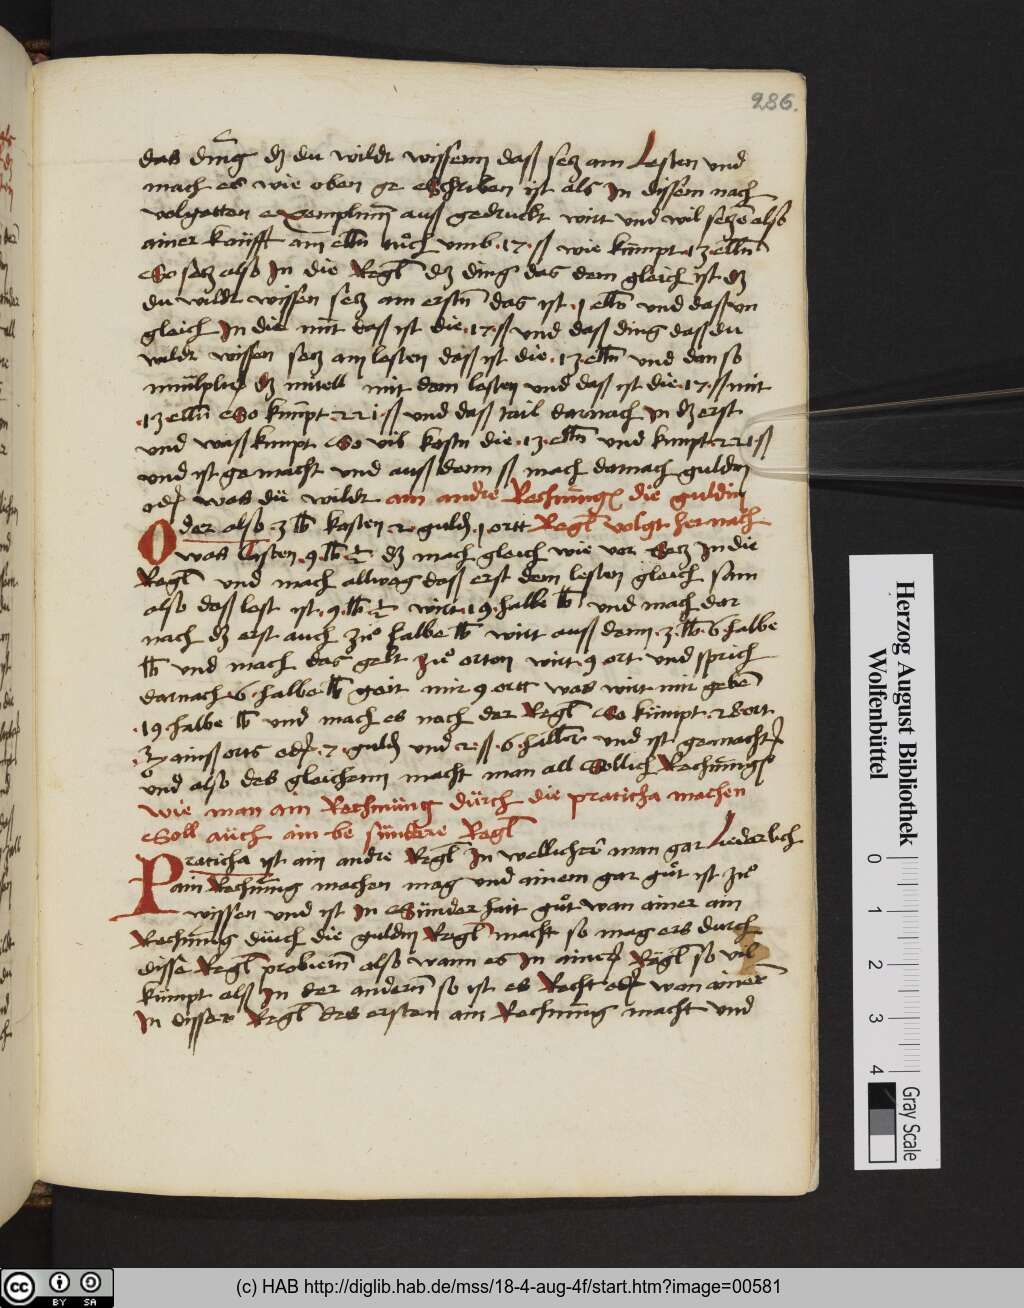 286.
das ding dz du wildt wissenn dass secz am Lesten vnd
mach es wie oben ge schriben ist als In dissem nach
volgetten exemplum auss gedruckt wirt vnd wil seczē also
ainer kaufft am ellñ tuͦch vmb .17. ß wie kumpt 13 ellñ
So secz also In die Regl dz ding das dem gleich ist dz
du wildt wissen secz am erstñ das ist .1 ellñ vnd dass vn
gleich In die mit dass ist die .17. ß vnd dass ding dass du
wildt wissen secz am lesten dass ist die .13 ellñ vnd dan so
multplir dz mitell mit dem lesten vnd dass ist die .17. ß mit
.13 ellñ So kumpt 221 ß vnd dass tail darnach In dz erst
vnd wass kumpt So vil kostn die .13. ellñ vnd kumpt 221 ß
vnd ist gemacht vnd auss denn ß mach darnach guldin
oder was du wildt ain andre Rechnung die guldin
Oder also 3 lb kosten 2 guld .1 ortt Regl volgt hernach
was Costen .9 lb dz mach gleich wie vor Secz In die
Regl vnd mach allweg dass erst dem lesten gleich sam
also dass lest ist .9. lb wirt .19. halbe lb vnd mach dar
nach dz erst auch zuͦ halbe lb wirt auss denn .3. lb 6 halbe
lb vnd mach das gelt zuͦ orten wirt 9 ort vnd sprich
darnach 6 halbe lb geit mir 9 ortt was wirt mir gebē
.19 halbe lb vnd mach es nach der Regl So kumpt 28 ort
ainss orts oder .7. guld vnd 2 ß .6 haller vnd ist gemacht
vnd also des gleichenn macht man all Sollich Rechnung
wie man ain Rechnung dürch die praticha machen
Soll aüch ain be sündere Regl
Praticha ist ain andre Regl In wellicher man gar Liederlich
ain Rechnung machen mag vnd ainem gar guͦt ist zuͦ
wissen vnd ist In Sünderhait guͦt wan ainer ain
Rechnung dürch die guldin Regl macht so mag ers durch
disse Regl probiernn also wann es In ainer Regl so vil
kümpt alss In der andern so ist es Recht oder wan ainer
In disser Regl des ersten ain Rechnung macht vnd
Herzog August Bibliothek
Wolfenbüttel
0 1 2 3 4
Gray Scale
(c) HAB http://diglib.hab.de/mss/18-4-aug-4f/start.htm?image=00581
cc BY SA